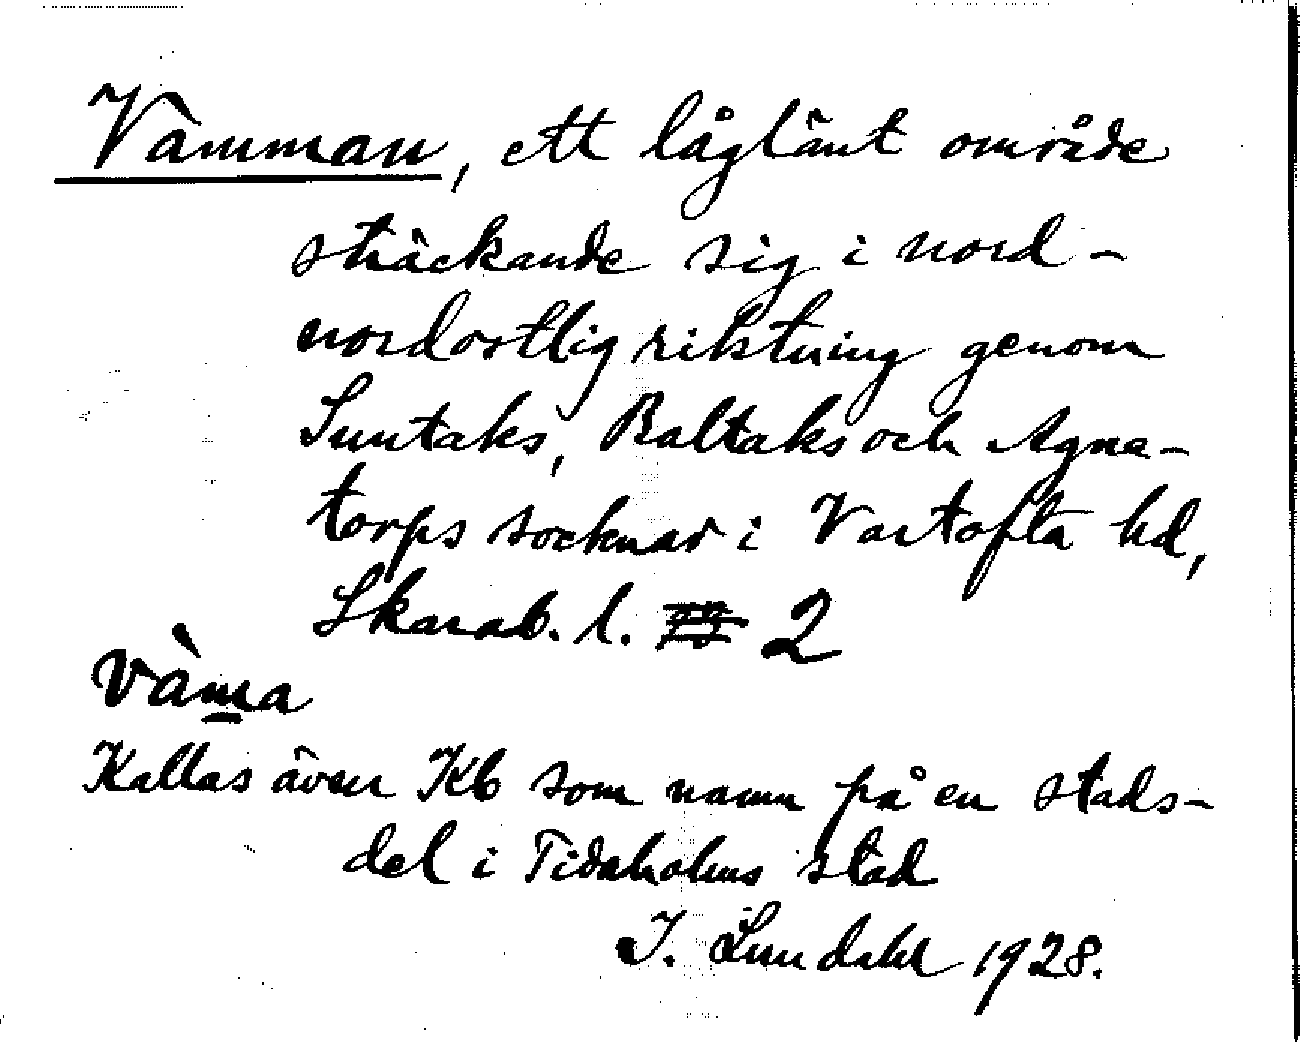 Vämman, ett låglänt område
sträckande sig i nord-
nordostlig riktning genom
Suntaks, Baltaks och Agne-
torps socknar i Vartofta hd,
Skarab. l. 2
vàma
Kallas även Kb som namn på en stads-
del i Tidaholms stad
I. Lundahl 1928.